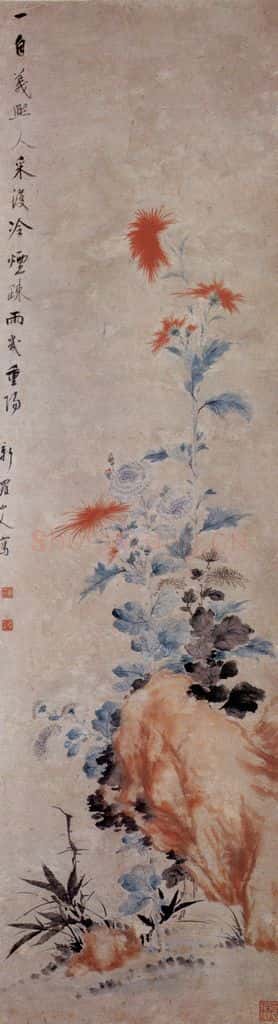 一自義熙人采後冷煙疎雨幾重陽
新羅山人寫